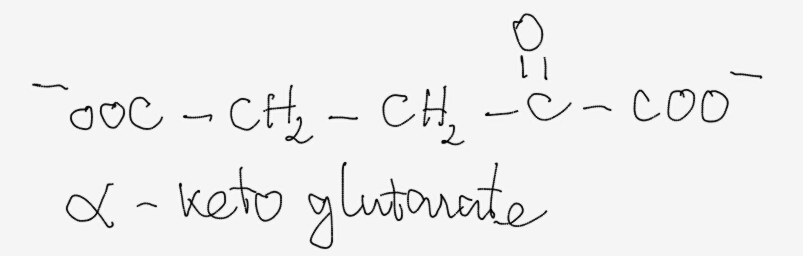 O
||
⁻OOC - CH₂ - CH₂ - C - COO⁻
α - keto glutarate